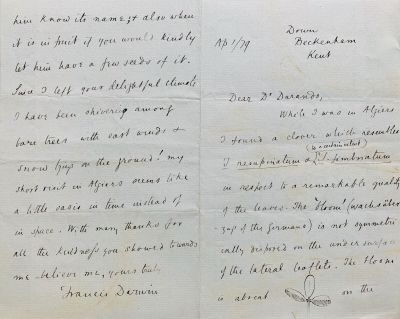 Down
Beckenham
Kent
Ap 1/79
Dear Dr Durando,
While I was in Algiers
I found a clover which resembles
T. resupinatum & T.
in respect to a remarkable quality
of the leaves. The 'bloom' (
of the Germans) is not symmetri
cally disposed on the under surface
of the lateral leaflets. The bloom
is absent on the
him know its name, & also when
it is in fruit if you would kindly
let him have a few seeds of it.
Since I left your delightful climate
I have been shivering among
bare trees with east winds &
snow lying on the ground! my
short visit in Algiers seems like
a little oasis in time instead of
in space. With many thanks for
all the kindness you showed towards
me believe me, yours truly
Francis Darwin